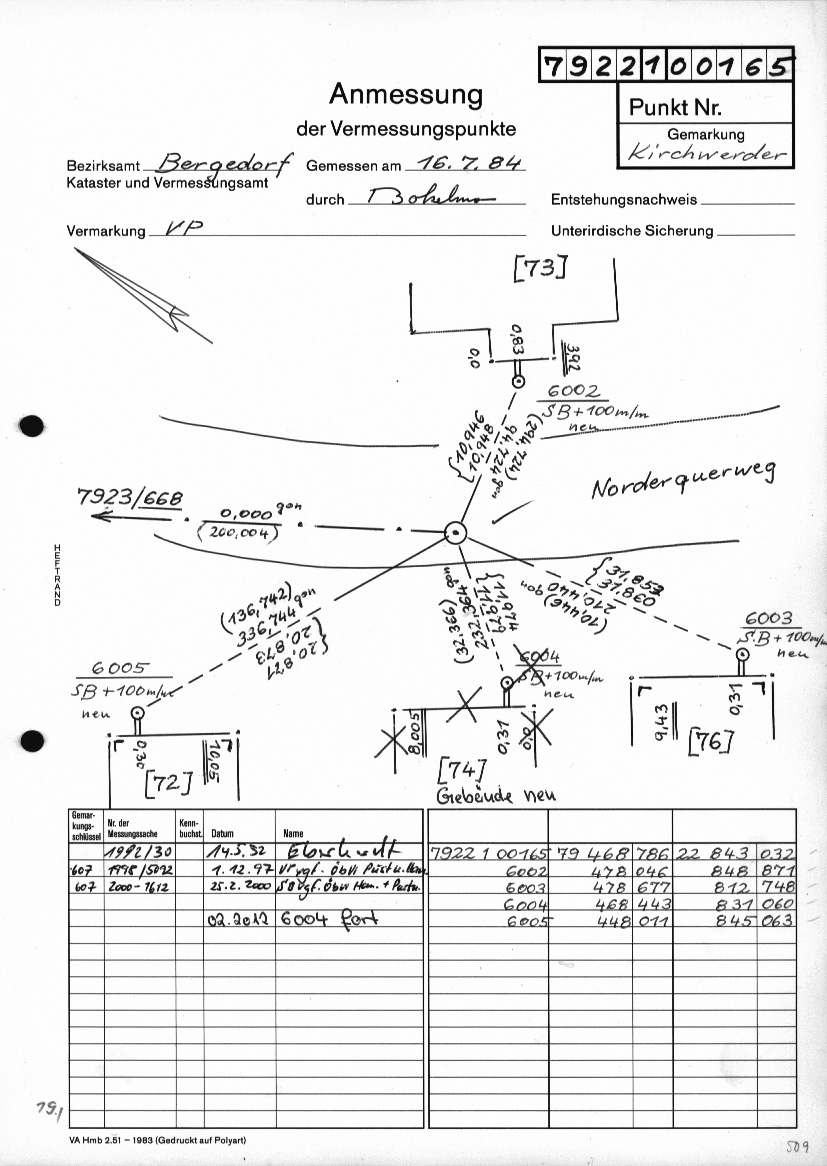 7922100165
Anmessung
der Vermessungspunkte
Punkt Nr.
Gemarkung
Kirchwerder
Bezirksamt Bergedorf
Kataster und Vermessungsamt
Gemessen am 16.7.84
durch
Entstehungsnachweis
Vermarkung VP
Unterirdische Sicherung
[73]
0,0
0,83
3,92
6002
SB+100m/m
neu
10,946
10,948
94,724 gon
(294,724)
Norderquerweg
7923/668
0,000 gon
(200,004)
HEFTRAND
(136,742)
336,744 gon
20,873
20,871
(32,366)
232,364 gon
11,979
11,974
31,853
31,860
210,440 gon
(10,446)
6005
SB+100m/m
neu
6004
SB+100m/m
neu
6003
SB+100m/m
neu
0,30
10,05
[72]
8,005
0,31
0,0
[74]
Gebäude neu
9,43
0,31
[76]
Gemar-
kungs-
schlüssel
Nr. der
Messungssache
Kenn-
buchst.
Datum
Name
1992/30 14.5.92 7922 1 00165 79 468 786 22 843 032
607 1995/5022 1.12.97 VP vgf. ÖbVI 6002 478 046 848 871
607 2000-7612 25.2.2000 SB vgf. ÖbVI 6003 478 677 812 748
6004 468 443 831 060
02.2012 6004 fort 6005 448 011 845 063
19,1
VA Hmb 2.51 – 1983 (Gedruckt auf Polyart)
509